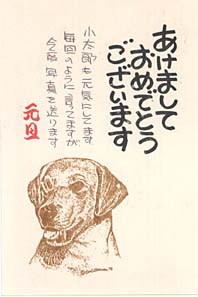 あけまして
おめでとう
ございます
小太郎も元気にしてます
毎回のように言ってますが
今度写真を送ります
元旦